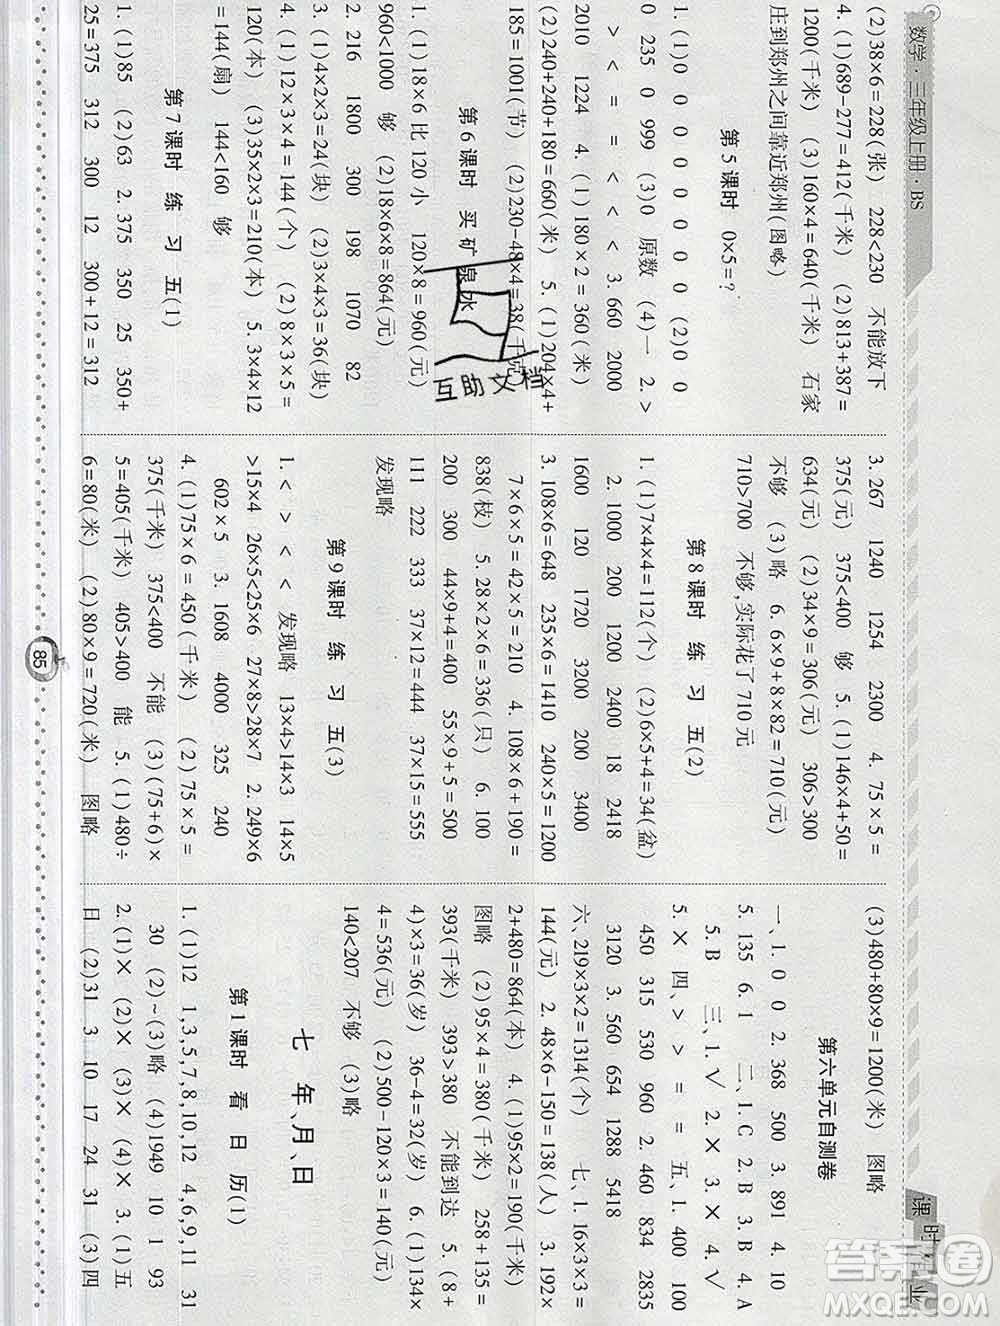 数学·三年级上册·BS
课时作业
(2)38×6=228(张) 228<230 不能放下
4. (1)689-277=412(千米) (2)813+387=
1200(千米) (3)160×4=640(千米) 石家
庄到郑州之间靠近郑州(图略)
第5课时 0×5=?
1. (1)0 0 0 0 0 0 0 0 (2)0 0
0 235 0 999 (3)0 原数 (4)一 2. >
> < = = < < 3. 660 2000
2010 1224 4. (1)180×2=360(米)
(2)240+240+180=660(米) 5. (1)204×4+
185=1001(节) (2)230-48×4=38(千克)
第6课时 买矿泉水
1. (1)18×6比120小 120×8=960(元)
960<1000 够 (2)18×6×8=864(元)
2. 216 1800 300 198 1070 82
3. (1)4×2×3=24(块) (2)3×4×3=36(块)
4. (1)12×3×4=144(个) (2)8×3×5=
120(本) (3)35×2×3=210(本) 5. 3×4×12
=144(扇) 144<160 够
第7课时 练习五(1)
1. (1)85 (2)63 2. 375 350 25 350+
25=375 312 300 12 300+12=312
3. 267 1240 1254 2300 4. 75×5=
375(元) 375<400 够 5. (1)146×4+50=
634(元) (2)34×9=306(元) 306>300
不够 (3)略 6. 6×9+8×82=710(元)
710>700 不够,实际花了710元
第8课时 练习五(2)
1. (1)7×4×4=112(个) (2)6×5+4=34(盆)
2. 1000 200 1200 2400 18 2418
1600 120 1720 3200 200 3400
3. 108×6=648 235×6=1410 240×5=1200
7×6×5=42×5=210 4. 108×6+190=
838(枝) 5. 28×2×6=336(只) 6. 100
200 300 44×9+4=400 55×9+5=500
111 222 333 37×12=444 37×15=555
发现略
第9课时 练习五(3)
1. < > < < 发现略 13×4>14×3 14×5
>15×4 26×5<25×6 27×8>28×7 2. 249×6
602×5 3. 1608 4000 325 240
4. (1)75×6=450(千米) (2)75×5=
375(千米) 375<400 不能 (3)(75+6)×
5=405(千米) 405>400 能 5. (1)480÷
6=80(米) (2)80×9=720(米) 图略
(3)480+80×9=1200(米) 图略
第六单元自测卷
一、1. 0 0 2. 368 500 3. 891 4. 10
5. 135 6. 1 二、1. C 2. B 3. B 4. A
5. B 三、1. √ 2. × 3. × 4. √
5. × 四、> > = = 五、1. 400 100
450 315 530 960 2. 460 834 2835
3120 3. 560 654 1288 5418
六、219×3×2=1314(个) 七、1. 16×3×3=
144(元) 2. 48×6-150=138(人) 3. 192×
2+480=864(本) 4. (1)95×2=190(千米)
图略 (2)95×4=380(千米) 258+135=
393(千米) 393>380 不能到达 5. (8+
4)×3=36(岁) 36-4=32(岁) 6. (1)134×
4=536(元) (2)500-120×3=140(元)
140<207 不够 (3)略
七 年、月、日
第1课时 看日历(1)
1. (1)12 1,3,5,7,8,10,12 4,6,9,11 31
30 (2)~(3)略 (4)1949 10 1 93
2. (1)× (2)× (3)× (4)× 3. (1)五
日 (2)31 3 10 17 24 31 (3)四
85
互助文档
答案圈
MXQE.COM